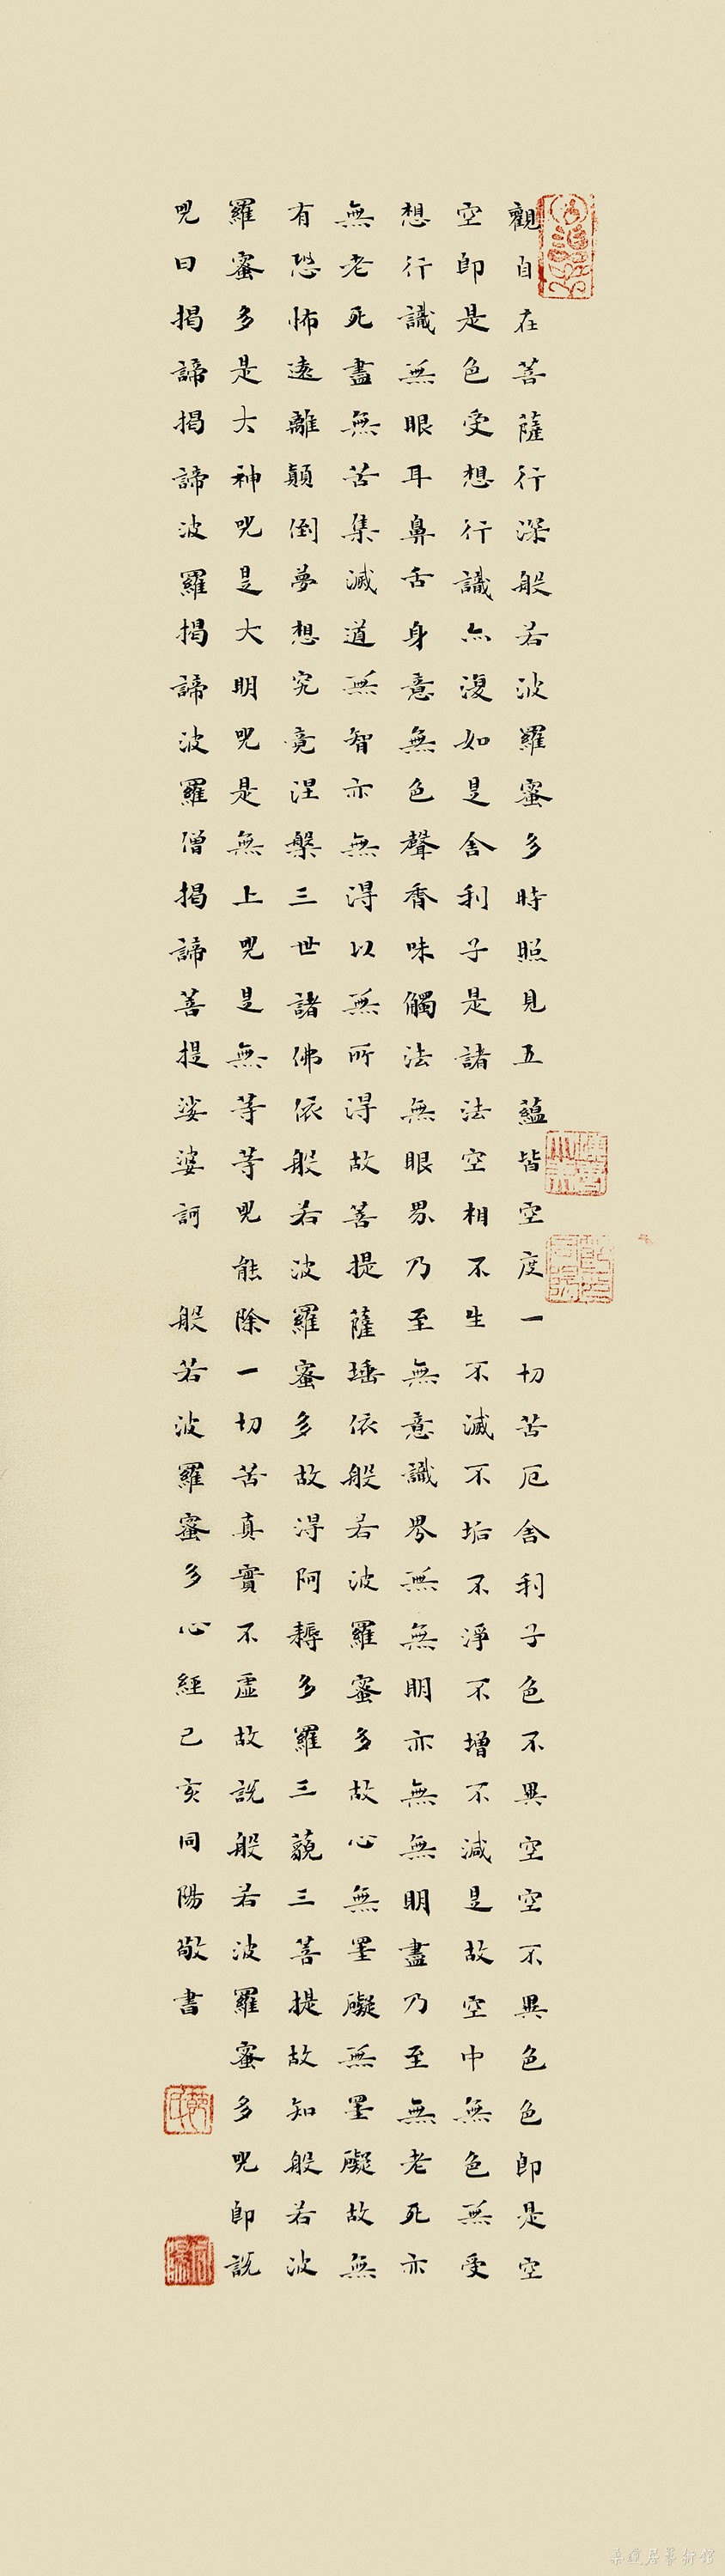 觀自在菩薩行深般若波羅蜜多時照見五蘊皆空度一切苦厄舍利子色不異空空不異色色即是空
空即是色受想行識亦復如是舍利子是諸法空相不生不滅不垢不淨不增不減是故空中無色無受
想行識無眼耳鼻舌身意無色聲香味觸法無眼界乃至無意識界無無明亦無無明盡乃至無老死亦
無老死盡無苦集滅道無智亦無得以無所得故菩提薩埵依般若波羅蜜多故心無罣礙無罣礙故無
有恐怖遠離顛倒夢想究竟涅槃三世諸佛依般若波羅蜜多故得阿耨多羅三藐三菩提故知般若波
羅蜜多是大神咒是大明咒是無上咒是無等等咒能除一切苦真實不虛故說般若波羅蜜多咒即說
咒曰揭諦揭諦波羅揭諦波羅僧揭諦菩提娑婆訶 般若波羅蜜多心經己亥同陽敬書
桑蓮居藝術館